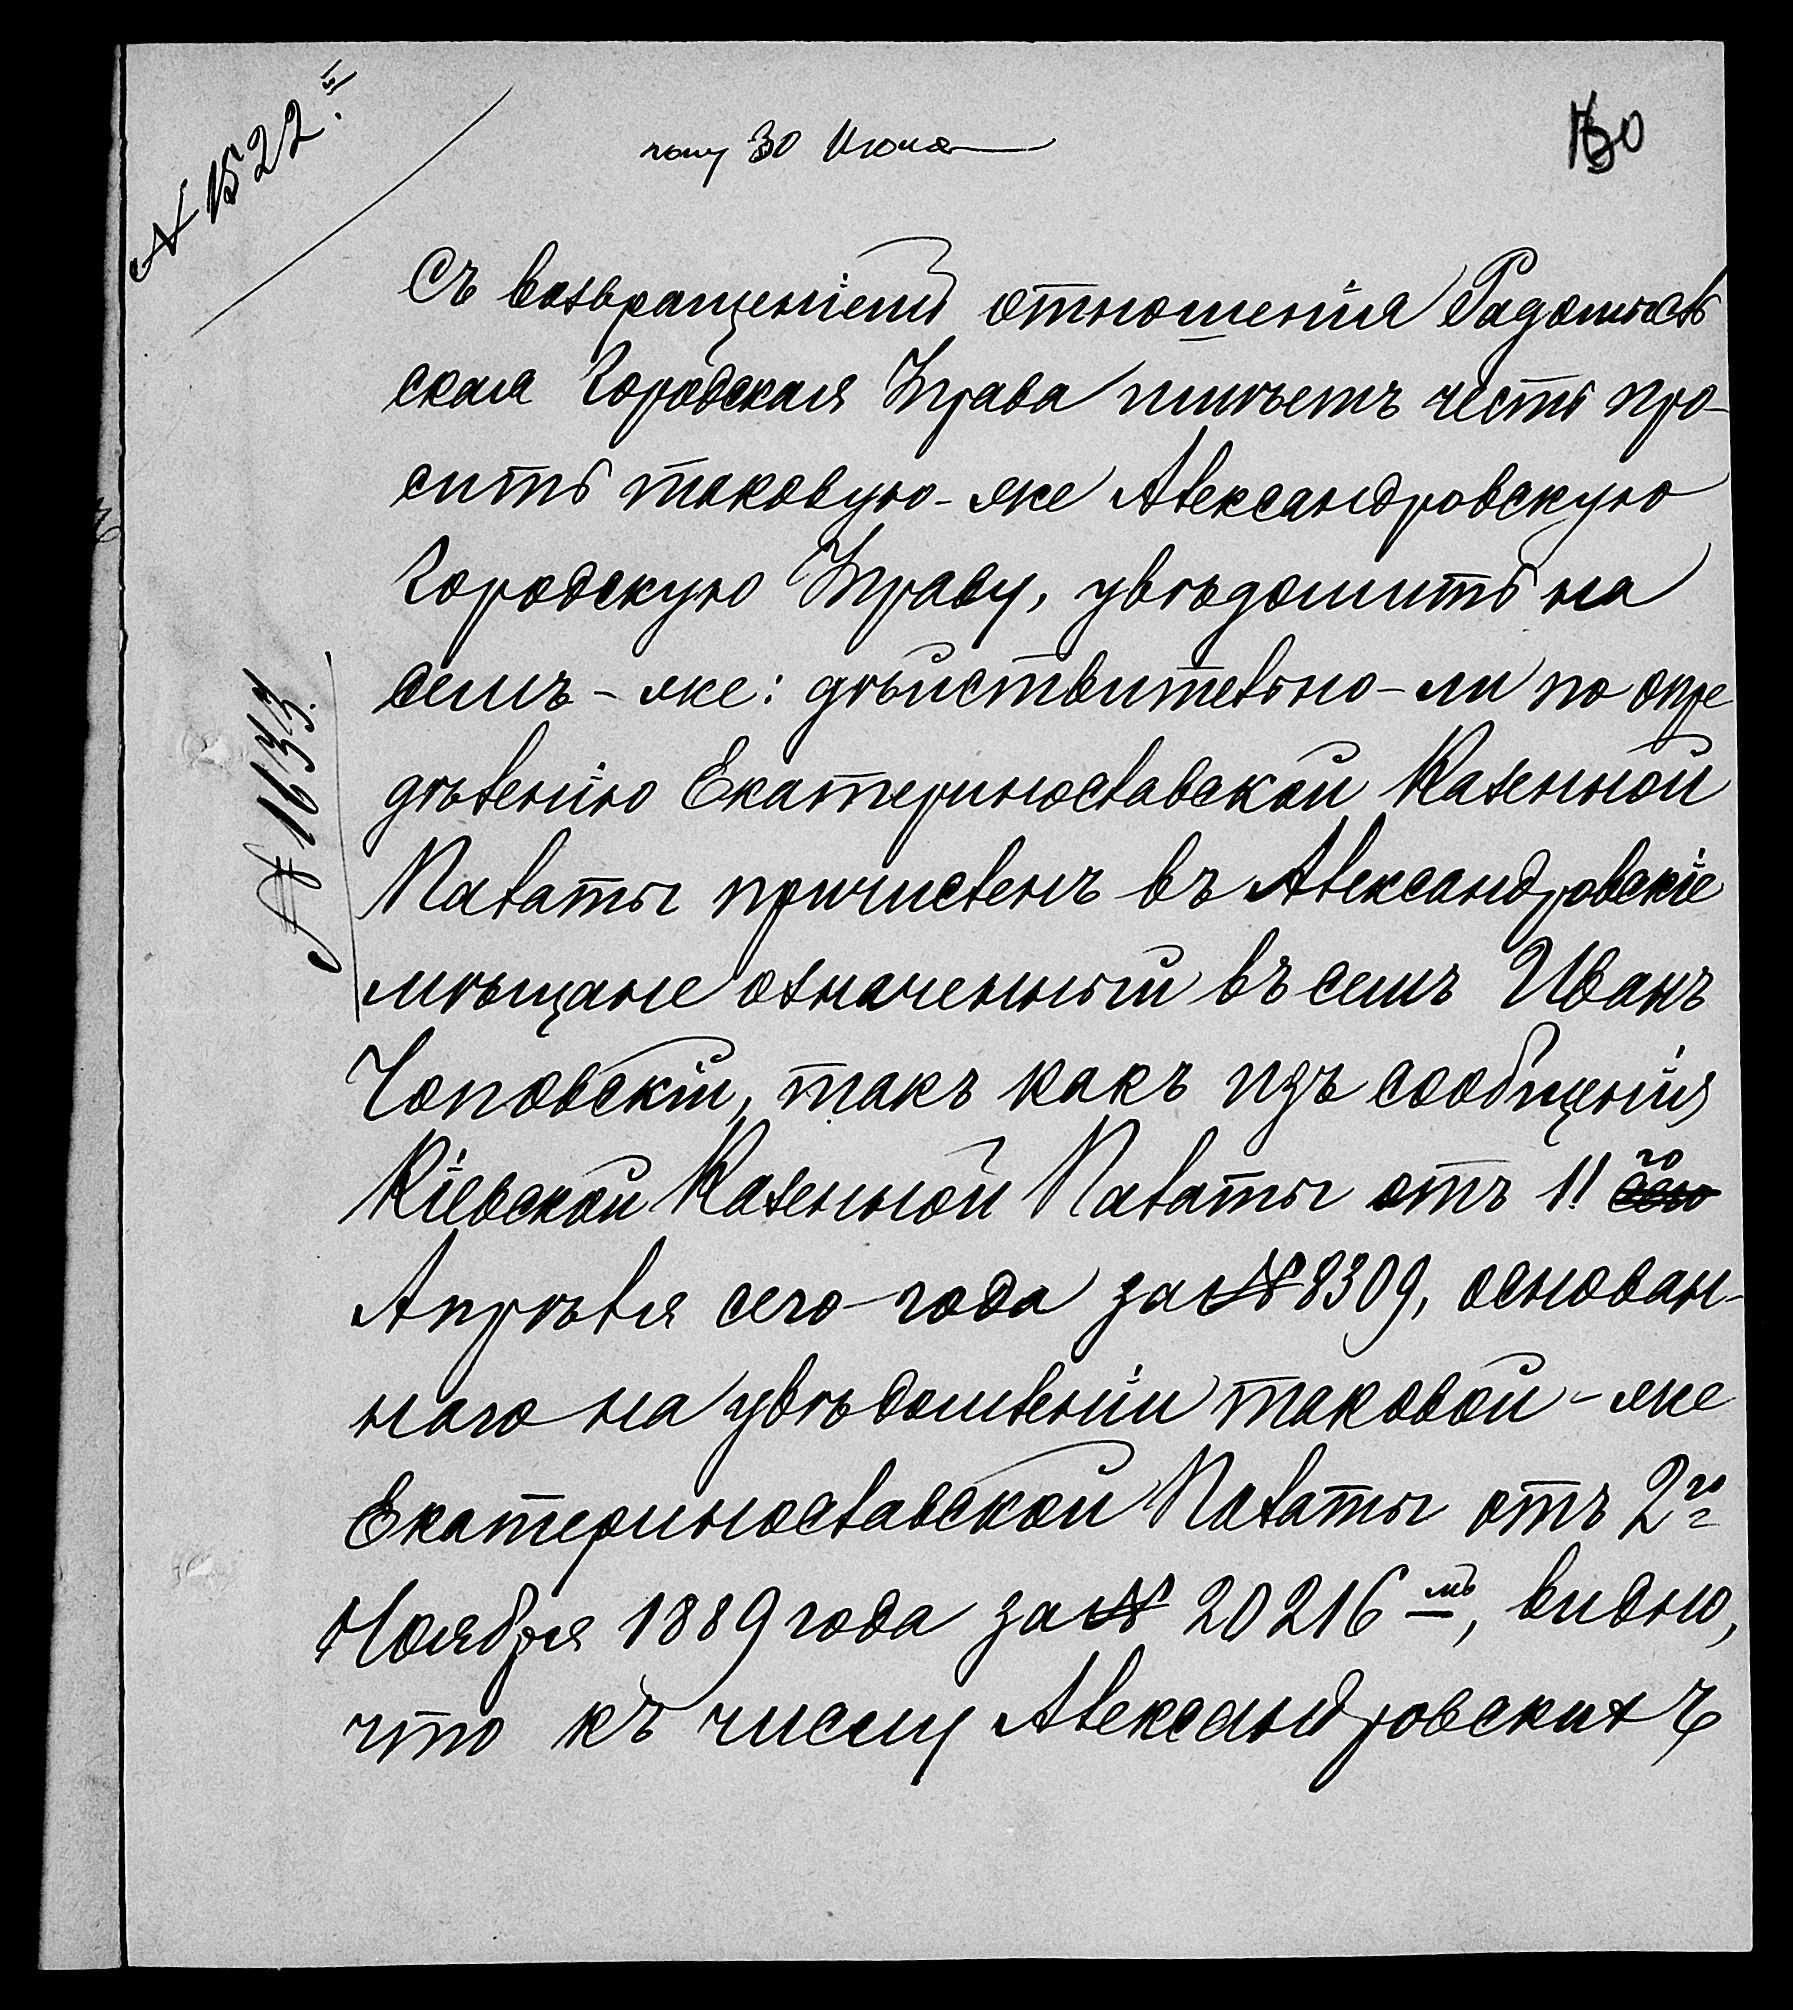 № 1522.
30 Июня
Съ возвращеніемъ отношенія Радомысль
ская Городская Управа имѣетъ честь про-
сить таковую-же Александровскую
Городскую Управу, увѣдомить на
семъ-же: дѣйствительно-ли по опре
дѣленію Екатеринославской Казенной
№ 1633.
Палаты причисленъ въ Александровскіе
мѣщане означенный въ семъ Иванъ
Чоповскій, такъ какъ изъ сообщенія
Кіевской Казенной Палаты отъ 11 го
Апрѣля сего-года за № 8309, основан-
наго на увѣдомленіи таковой-же
Екатеринославской Палаты отъ 2го
Ноября 1889 года за № 20216 мъ, видно,
что къ числу Александровскихъ